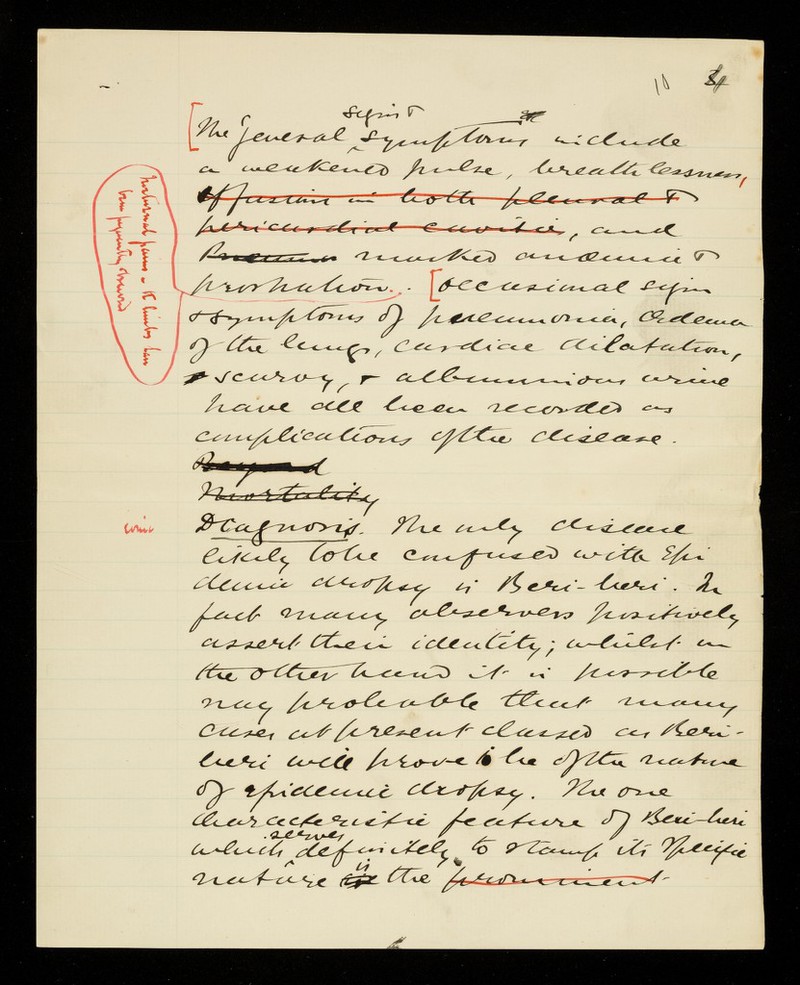 10
signs &
[The general symptoms include
a weakened pulse, breathlessness,
effusions in both pleural &
pericardial cavities, and
marked anæmia &
prostration. [occasional signs
& symptoms of pneumonia, Oedema
of the lungs, cardiac dilatation,
scurvy, & albuminous urine
have all been recorded as
complications of the disease.
nocturnal pains in the limbs have
been frequently observed
Mortality
Diagnosis. The only disease
likely to be confused with Epi
demic dropsy is Beri-beri. In
fact many observers positively
assert their identity; whilst on
the other hand it is possible
nay probable that many
cases at present classed as Beri-
beri will prove to be of the nature
of epidemic dropsy. The one
characteristic feature of Beri-beri
serves
which definitely to stamp its specific
is
nature the prominent